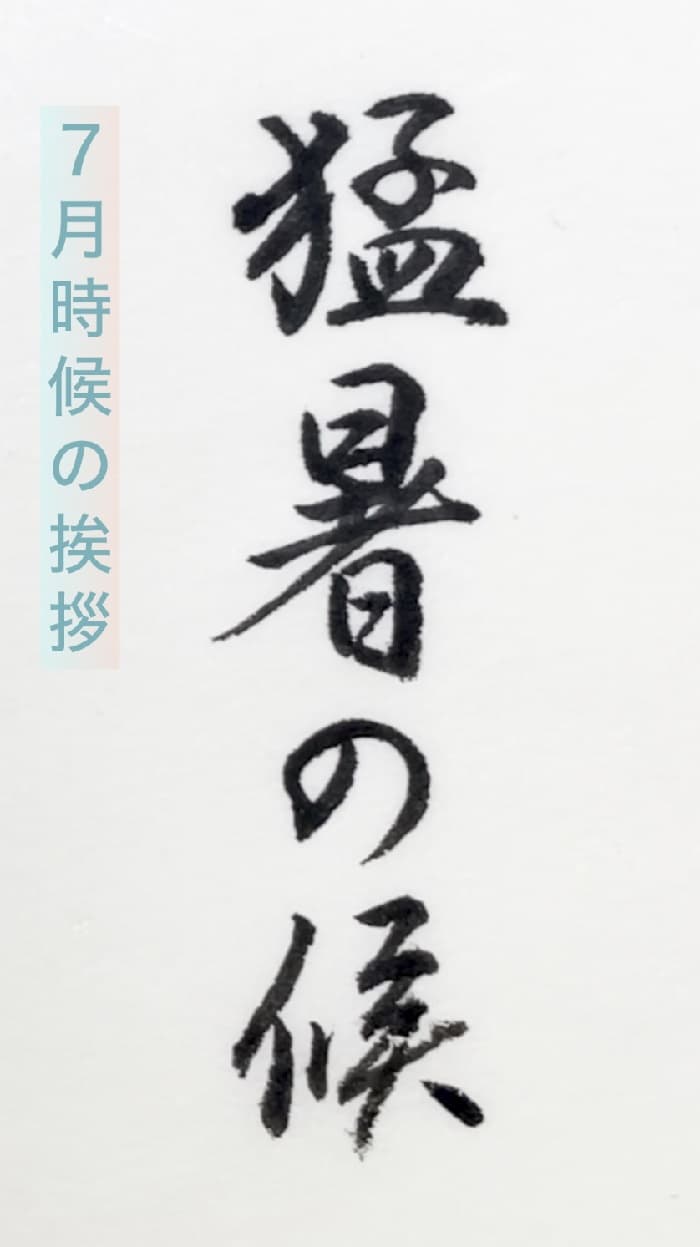 猛暑の候
7月時候の挨拶